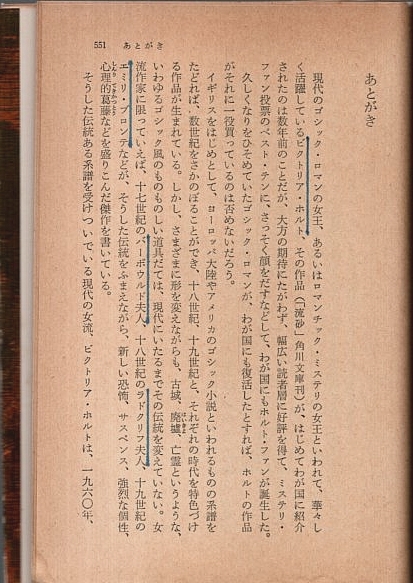 551　あとがき
あとがき
現代のゴシック・ロマンの女王、あるいはロマンチック・ミステリの女王といわれて、華々し
く活躍しているビクトリア・ホルト、その作品（「流砂」角川文庫刊）が、はじめてわが国に紹介
されたのは数年前のことだが、大方の期待にたがわず、幅広い読者層に好評を得て、ミステリ・
ファン投票のベスト・テンに、さっそく顔をだすなどして、わが国にもホルト・ファンが誕生した。
久しくなりをひそめていたゴシック・ロマンが、わが国にも復活したとすれば、ホルトの作品
がそれに一役買っているのは否めないだろう。
イギリスをはじめとして、ヨーロッパ大陸やアメリカのゴシック小説といわれるものの系譜を
たどれば、数世紀をさかのぼることができ、十八世紀、十九世紀と、それぞれの時代を特色づけ
る作品が生まれている。しかし、さまざまに形を変えながらも、古城、廃墟、亡霊というような、
いわゆるゴシック風のものものしい道具だては、現代にいたるまでその伝統を変えていない。女
流作家に限っていえば、十七世紀のバーボウルド夫人、十八世紀のラドクリフ夫人、十九世紀の
エミリ・ブロンテなどが、そうした伝統をふまえながら、新しい恐怖、サスペンス、強烈な個性、
心理的葛藤などを盛りこんだ傑作を書いている。
そうした伝統ある系譜を受けついでいる現代の女流、ビクトリア・ホルトは、一九六〇年、